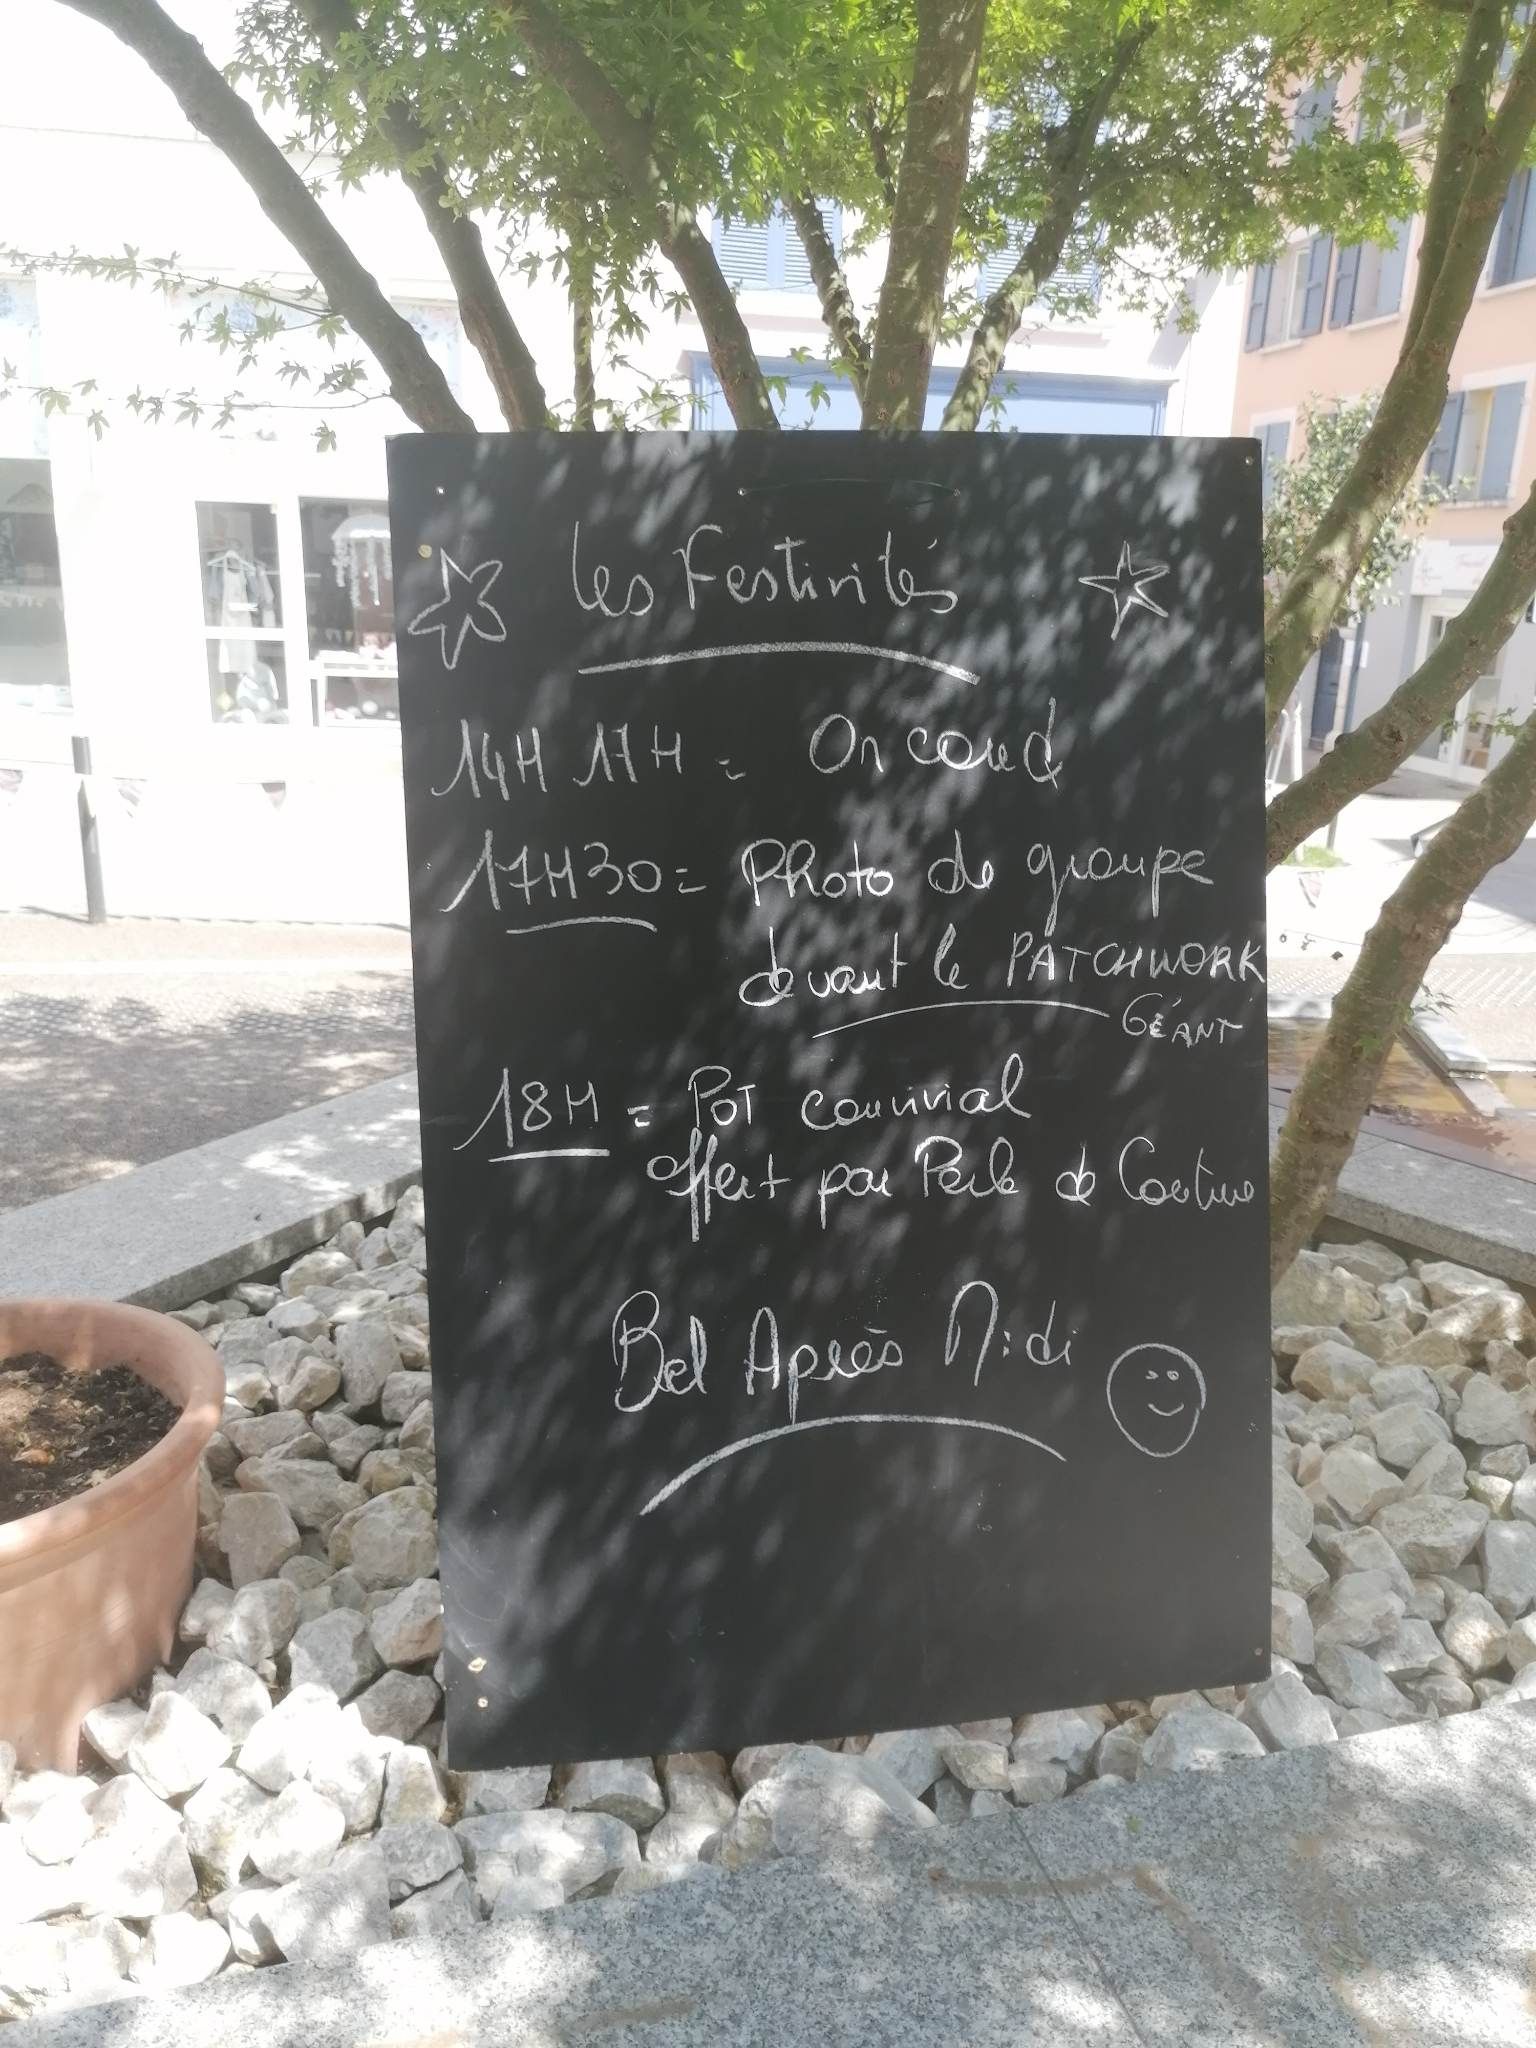 Les Festivités
14H 17H = On coud
17H30 = Photo de groupe
devant le PATCHWORK
GÉANT
18H = Pot convivial
offert par Perle de Couture
Bel Après Midi